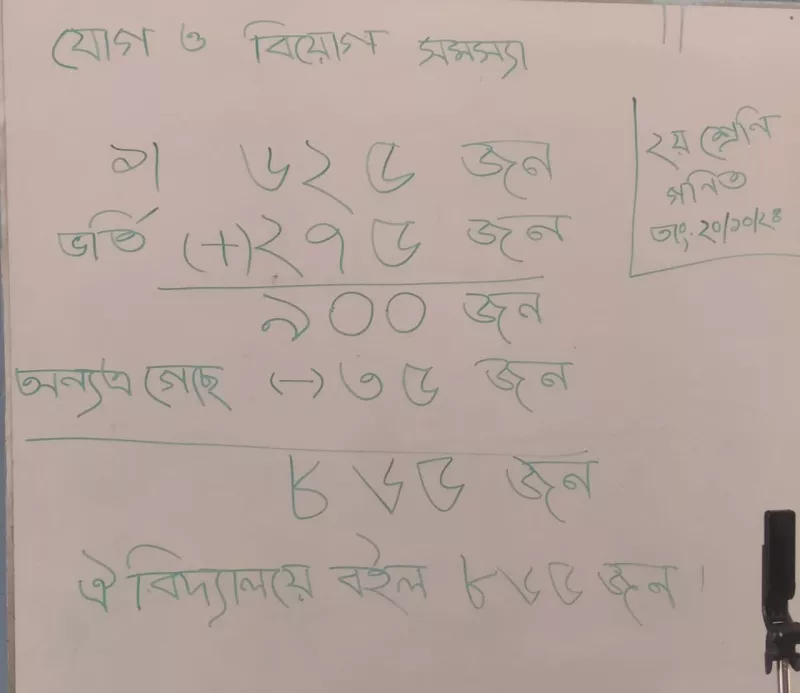 যোগ ও বিয়োগ সমস্যা
২য় শ্রেনি
গনিত
তাং-২০/১০/২৪
৯। ৬২৫ জন
ভর্তি (+) ২৭৫ জন
৯০০ জন
অন্যত্র গেছে (-) ৩৫ জন
৮৬৫ জন
ঐ বিদ্যালয়ে বইল ৮৬৫ জন।